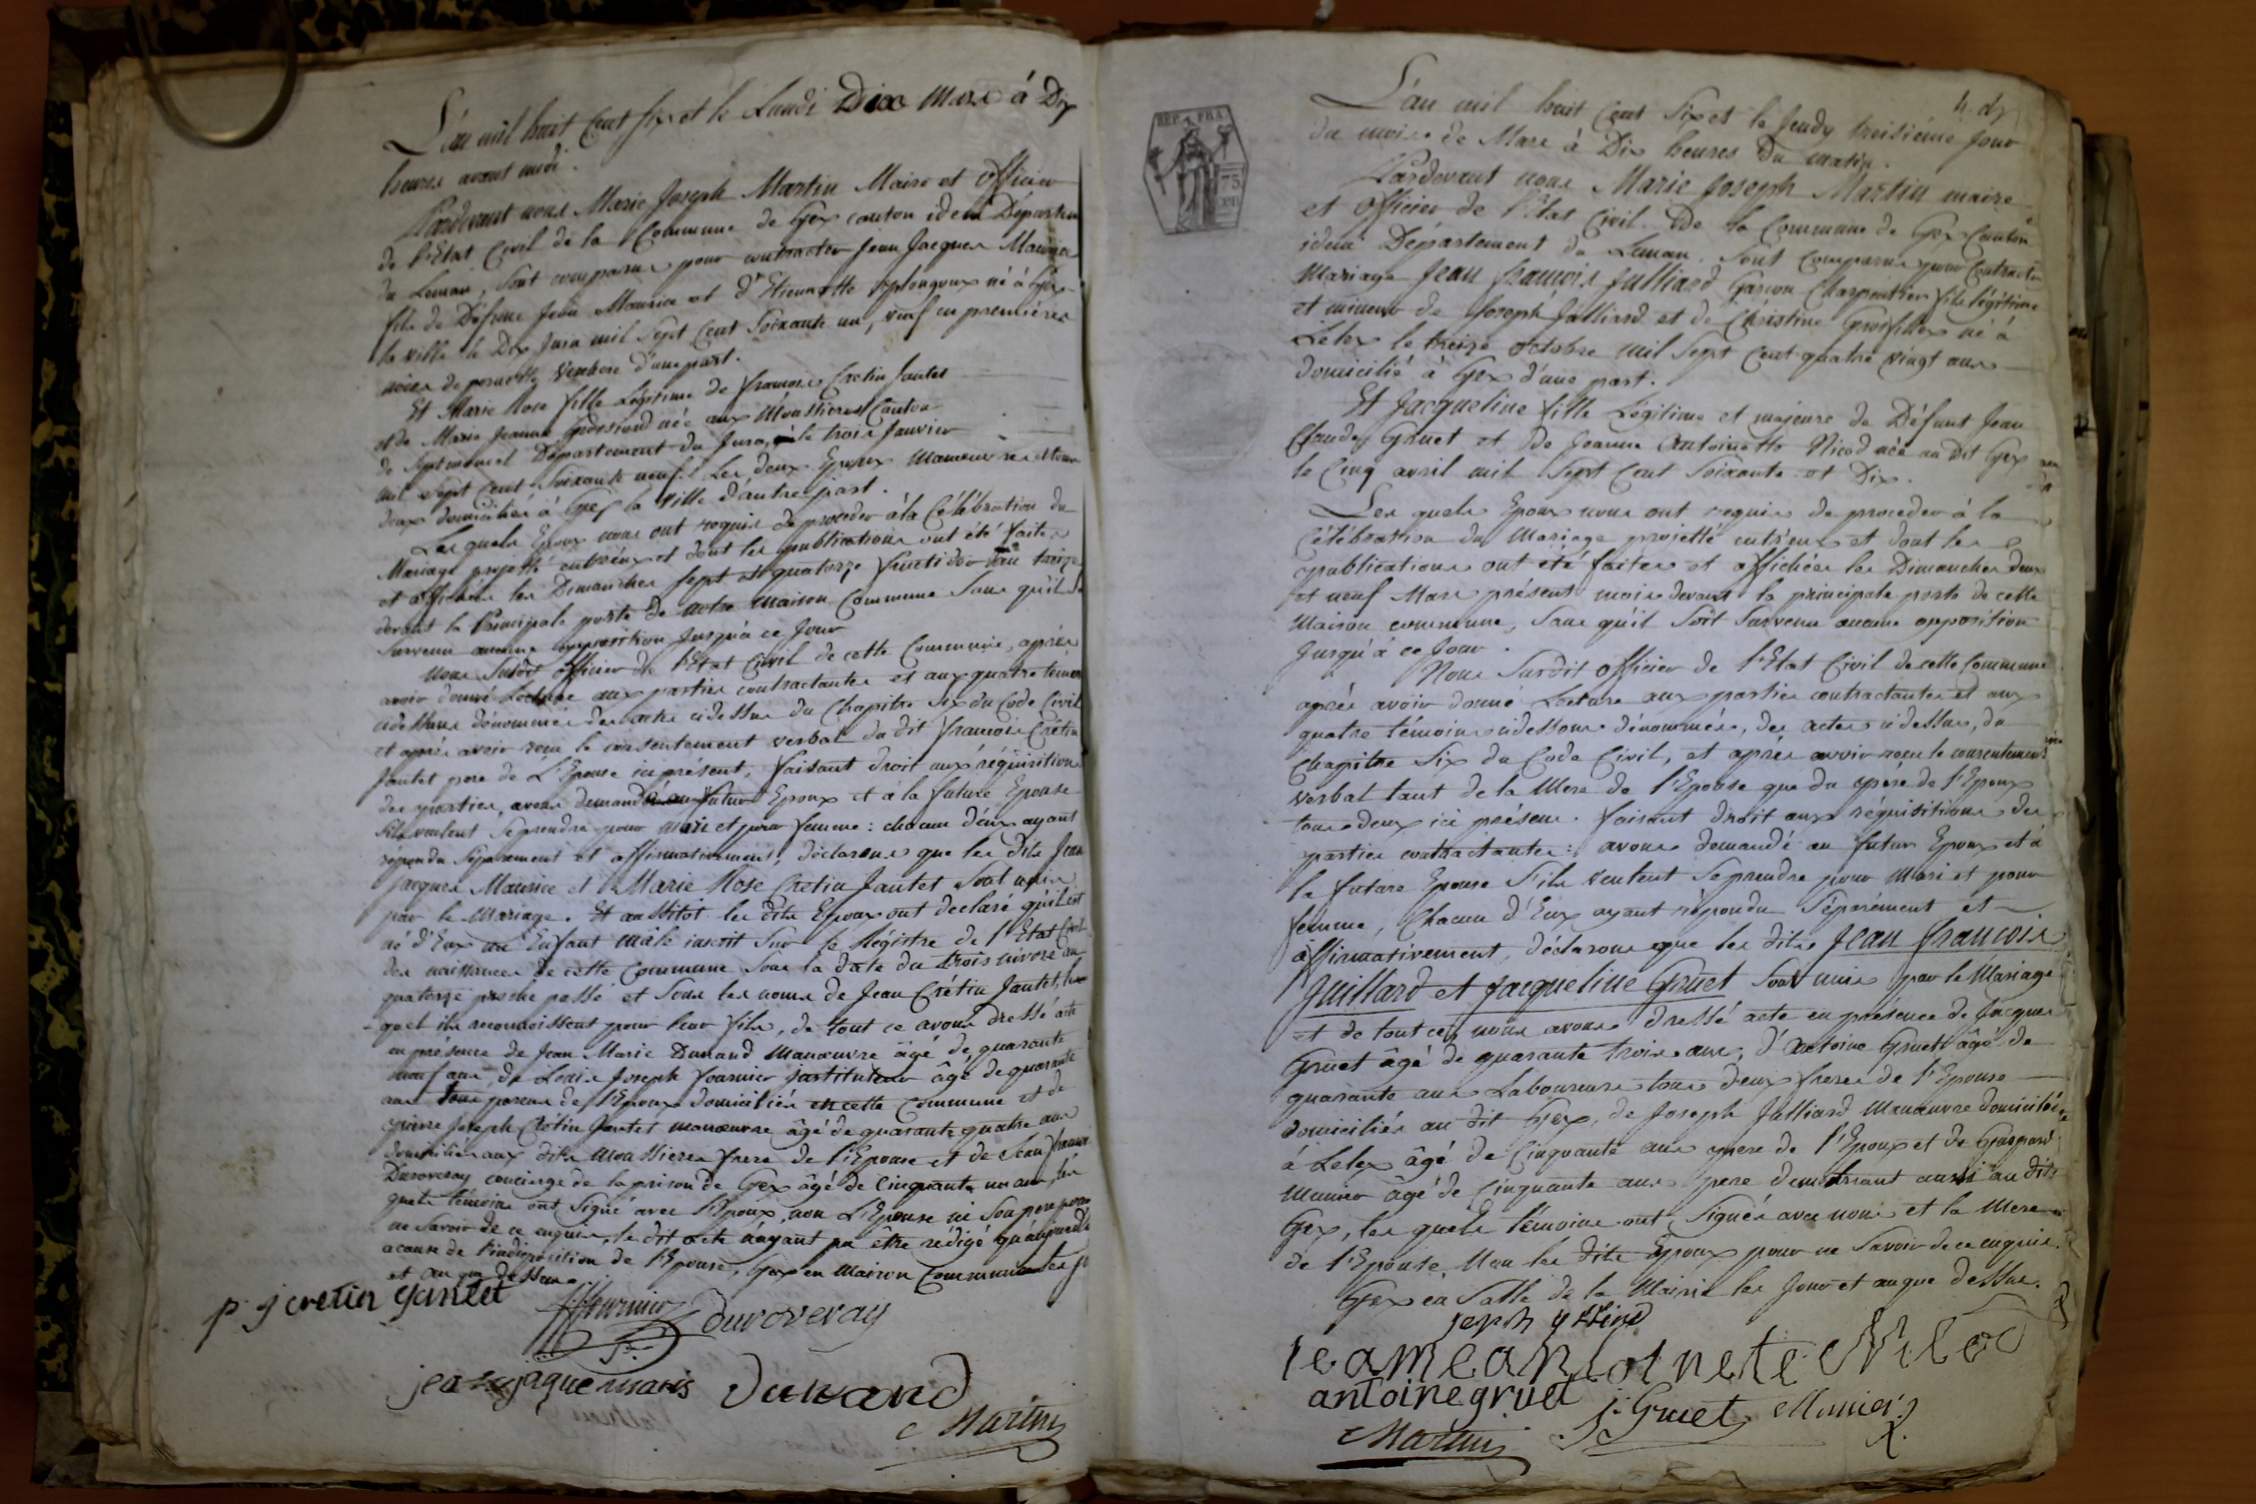 L'an mil huit Cent Six et le Lundi Dix Mars à Dix
heures avant midi.
Pardevant nous Marie Joseph Martin Maire et Officier
de l'Etat Civil de la Commune de Gex canton idem Départem
du Leman, Sont comparus pour contracter Jean Jacques Maurice
fils de Défunt Jean Maurice et d'Etiennette né à Gex
la ville le Dix Juin mil Sept Cent Soixante un, veuf en premières
noces de pernette d'une part.
Et Marie Rose fille Légitime de francois Cretin Jantet
et de Marie Jeanne née aux Moussieres Canton
de Septmoncel Département du Jura, le trois Janvier
mil Sept Cent Soixante neuf. Les deux Epoux Manœuvres
deux domiciliés à Gex la ville d'autre part.
Les quels Epoux nous ont requis de proceder à la Célébration du
Mariage projetté entr'eux et dont les publications ont été faites
et affichées les Dimanches Sept et quatorze fructidor an treize
devant la Principale porte de notre maison Commune Sans qu'il
Survenu aucune opposition Jusqu'à ce Jour
Nous Susdit officier de l'Etat Civil de cette Commune, après
avoir donné Lecture aux parties contractantes et aux quatre temoins
cidessous dénommés des actes cidessus du Chapitre Six du Code Civil
et après avoir reçu le consentement verbal du dit francois Crétin
Jantet pere de L'Epouse ici présent, faisant droit aux réquisitions
des parties, avons demandé au futur Epoux et a la future Epouse
S'ils veulent Se prendre pour mari et pour femme : chacun d'eux ayant
répondu Séparement et affirmativement, déclarons que les dits Jean
Jacques Maurice et Marie Rose Cretin Jantet Sont unis
par le Mariage. Et aussitôt les dits Epoux ont declaré qu'il est
né d'Eux un Enfant mâle inscrit Sur le Régistre de l'Etat Civil
des naissances de cette Commune Sous la date du trois nivose an
quatorze proche passé et Sous les noms de Jean Crétin Jantet, le
quel ils reconnoissent pour leur fils, de tout ce avons dressé acte
en présence de Jean Marie Dunand Manœuvre âgé de quarante
neuf ans, de Louis Joseph fournier jnstituteur âgé de quarante
ans tous de l'Epoux domiciliés en cette Commune et de
pierre Joseph Crétin Jantet manœuvre âgé de quarante quatre ans
domicilié aux dits Moussieres frere de l'Epouse et de Jean francois
Duroveray concierge de la prison de Gex âgé de Cinquante un ans, les
quels témoins ont Signé avec l'Epoux, non L'Epouse ni Son pere pour
ne Savoir de ce enquis, le dit acte n'ayant pu être rédigé qu'aujourd'hui
a cause de l'indisposition de l'Epouse, Gex en Maison Commune les Jo
et an que dessus.
p. j cretin Jantet fournier duroveray
jean jaque maris Dunand
Martin
4. d
L'an mil huit Cent Six et le Jeudy treisiéme Jour
du mois de Mars à Dix heures du matin.
Pardevant nous Marie Joseph Martin maire
et Officier de l'Etat Civil de la Commune de Gex Canton
idem Département du Leman. Sont Comparus pour Contracter
Mariage Jean francois Julliard Garcon Charpentier fils légitime
et mineur de Joseph Julliard et de Christine né à
Lelex le treize Octobre mil Sept Cent quatre vingt
domicilié à Gex d'une part.
Et Jacqueline fille Légitime et majeure de Défunt Jean
Claude Gruet et de Jeanne Antoinette Nicod née au dit Gex
le Cinq avril mil Sept Cent Soixante et Dix.
Les quels Epoux nous ont requis de proceder à la
Célébration du Mariage projetté entr'eux et dont les
publications ont été faites et affichées les Dimanches deux
et neuf Mars présent mois devant la principale porte de cette
Maison commune, Sans qu'il Soit Survenu aucune opposition
Jusqu'à ce Jour.
Nous Susdit officier de l'Etat Civil de cette Commune
après avoir donné Lecture aux parties contractantes et aux
quatre témoins cidessous dénommés, des actes cidessus, du
Chapitre Six du Code Civil, et après avoir reçu le consentement
verbal tant de la Mere de l'Epouse que du pere de l'Epoux
tous deux ici présens. faisant droit aux réquisitions des
parties contractantes : avons demandé au futur Epoux et à
la future Epouse S'ils veulent Se prendre pour Mari et pour
femme, Chacun d'Eux ayant répondu Séparément et
affirmativement, déclarons que les dits Jean francois
Juillard et Jacqueline Gruet Sont unis par le Mariage
et de tout ce, nous avons dressé acte en présence de Jacques
Gruet âgé de quarante trois ans, d'Antoine Gruet âgé de
quarante ans Laboureurs tous deux freres de l'Epouse
domiciliés au dit Gex, de Joseph Julliard Manœuvre domicilié
à Lelex âgé de Cinquante ans pere de l'Epoux et de Gaspard
Munier âgé de Cinquante ans demeurant aussi au dit
Gex, les quels témoins ont Signés avec nous et la Mere
de l'Epouse, Non les dits Epoux pour ne Savoir de ce enquis.
Gex en Salle de la Mairie les Jour et an que dessus.
antoine gruet J. Gruet Munier
Martin